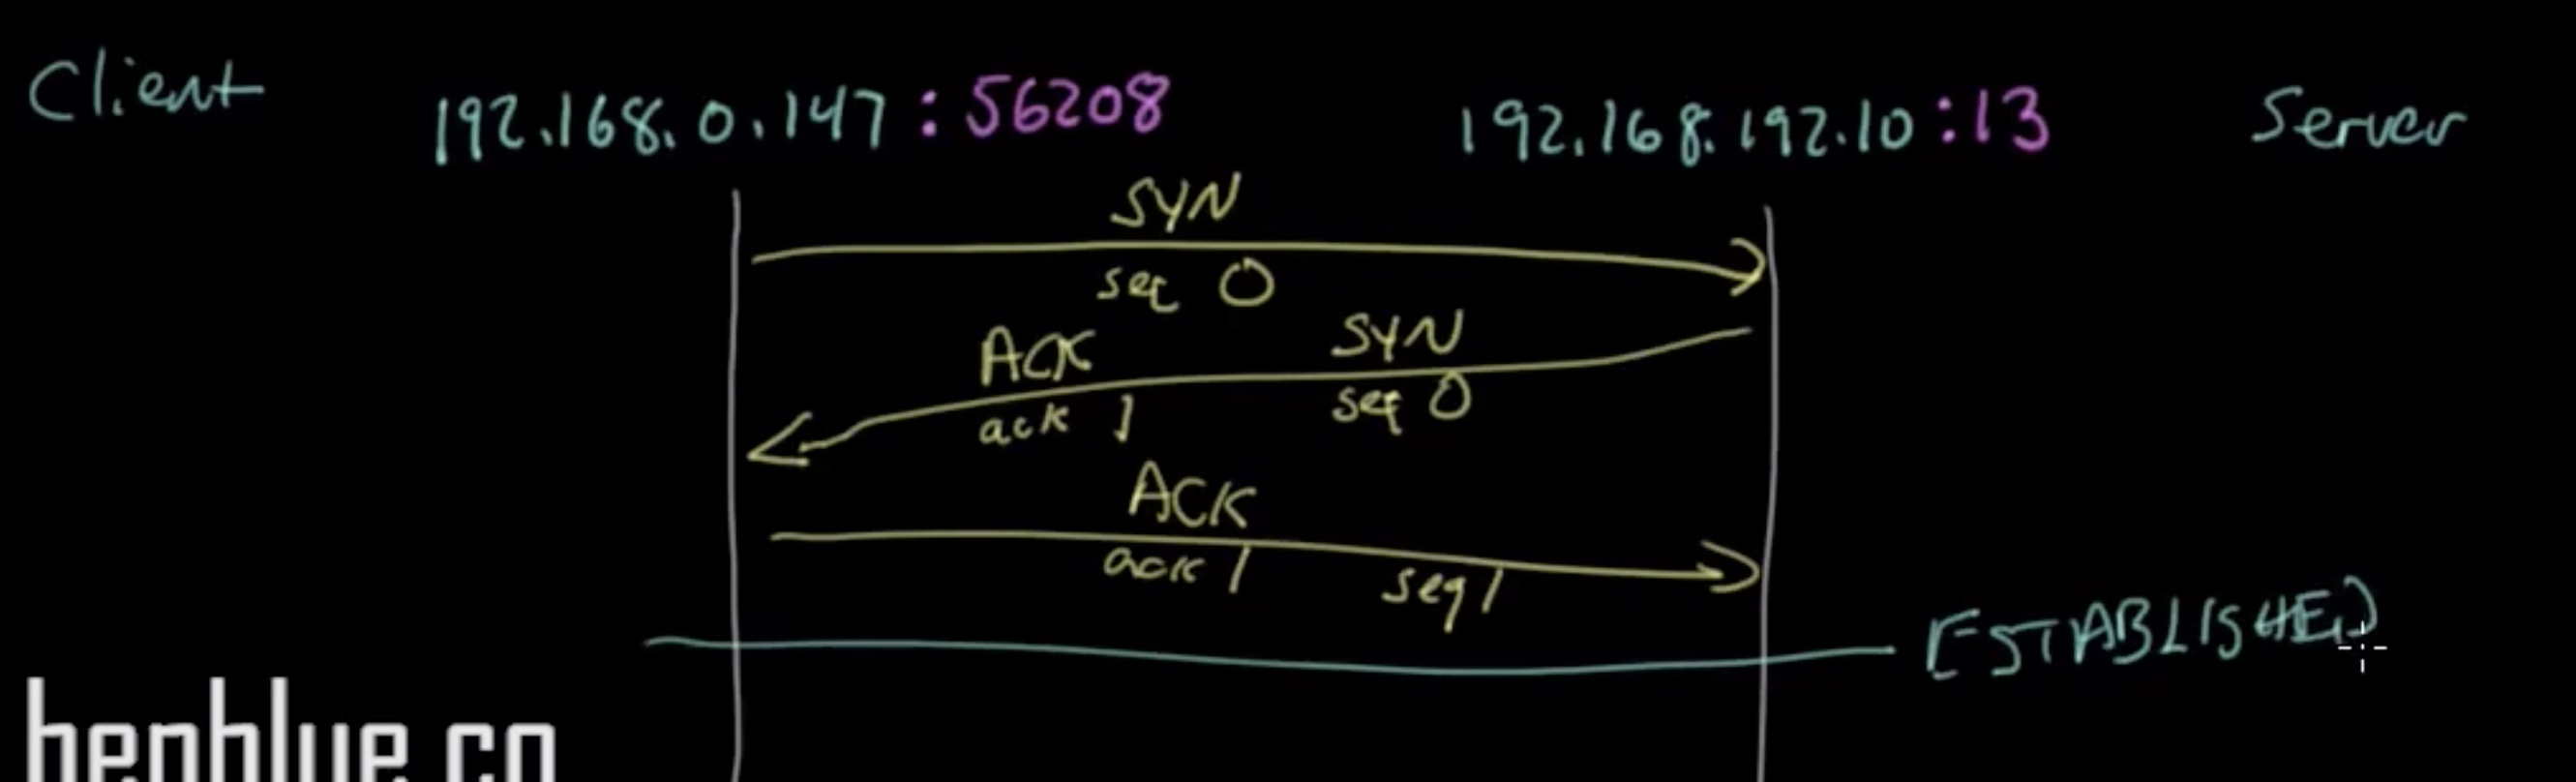 Client 192.168.0.147:56208 192.168.192.10:13 Server
SYN
seq 0
ACK SYN
ack 1 seq 0
ACK
ack 1 seq 1
ESTABLISHED